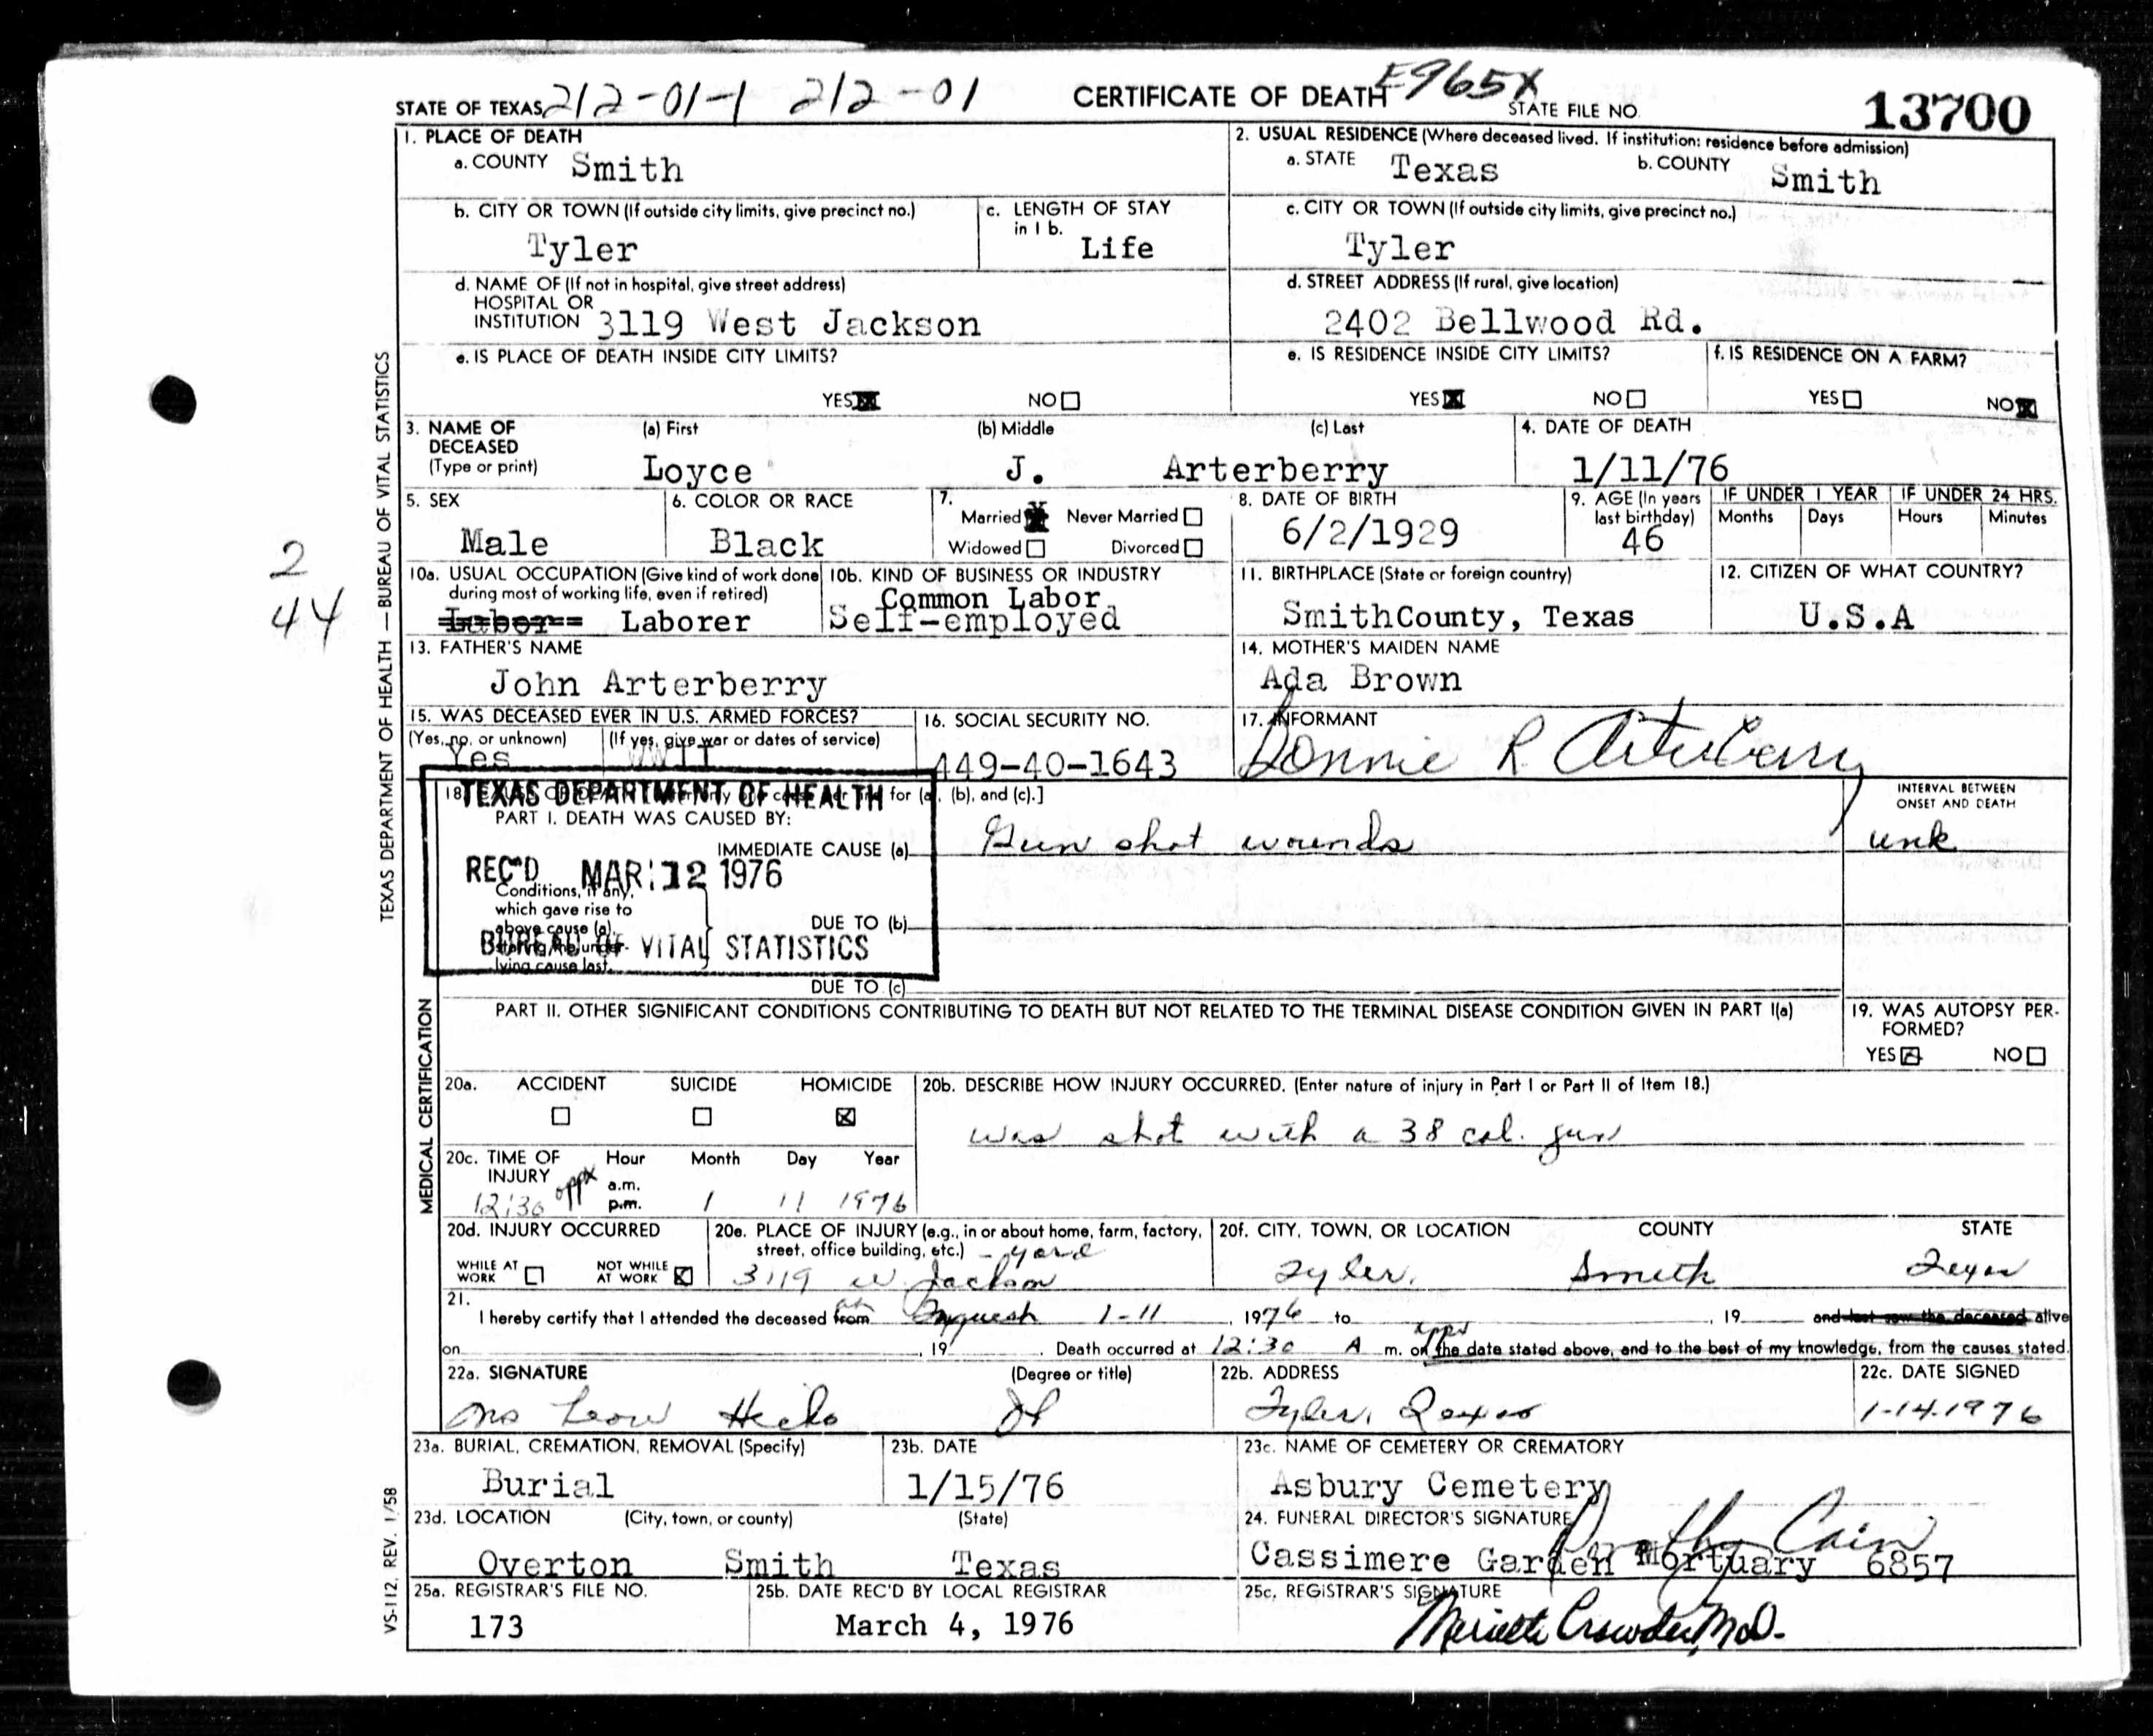 STATE OF TEXAS 212-01-1 212-01 CERTIFICATE OF DEATH E965X STATE FILE NO. 13700
1. PLACE OF DEATH
a. COUNTY Smith
2. USUAL RESIDENCE (Where deceased lived. If institution: residence before admission)
a. STATE Texas b. COUNTY Smith
b. CITY OR TOWN (If outside city limits, give precinct no.)
Tyler
c. LENGTH OF STAY in 1 b.
Life
c. CITY OR TOWN (If outside city limits, give precinct no.)
Tyler
d. NAME OF (If not in hospital, give street address)
HOSPITAL OR
INSTITUTION 3119 West Jackson
d. STREET ADDRESS (If rural, give location)
2402 Bellwood Rd.
e. IS PLACE OF DEATH INSIDE CITY LIMITS?
YES NO
e. IS RESIDENCE INSIDE CITY LIMITS?
YES NO
f. IS RESIDENCE ON A FARM?
YES NO
3. NAME OF DECEASED (Type or print)
(a) First (b) Middle (c) Last
Loyce J. Arterberry
4. DATE OF DEATH
1/11/76
5. SEX
Male
6. COLOR OR RACE
Black
7.
Married Never Married
Widowed Divorced
8. DATE OF BIRTH
6/2/1929
9. AGE (In years last birthday)
46
IF UNDER 1 YEAR IF UNDER 24 HRS.
Months Days Hours Minutes
10a. USUAL OCCUPATION (Give kind of work done during most of working life, even if retired)
Labor Laborer
10b. KIND OF BUSINESS OR INDUSTRY
Common Labor
Self-employed
11. BIRTHPLACE (State or foreign country)
SmithCounty, Texas
12. CITIZEN OF WHAT COUNTRY?
U.S.A
13. FATHER'S NAME
John Arterberry
14. MOTHER'S MAIDEN NAME
Ada Brown
15. WAS DECEASED EVER IN U.S. ARMED FORCES?
(Yes, no, or unknown) (If yes, give war or dates of service)
Yes WWII
16. SOCIAL SECURITY NO.
449-40-1643
17. INFORMANT
Bonnie R Arterberry
TEXAS DEPARTMENT OF HEALTH
REC'D MAR 12 1976
BUREAU OF VITAL STATISTICS
18. for (a), (b), and (c).]
PART I. DEATH WAS CAUSED BY:
IMMEDIATE CAUSE (a) Gun shot wounds
INTERVAL BETWEEN ONSET AND DEATH
unk
Conditions, if any,
which gave rise to
above cause (a),
stating the under-
lying cause last.
DUE TO (b)
DUE TO (c)
PART II. OTHER SIGNIFICANT CONDITIONS CONTRIBUTING TO DEATH BUT NOT RELATED TO THE TERMINAL DISEASE CONDITION GIVEN IN PART I(a)
19. WAS AUTOPSY PER-
FORMED?
YES NO
20a. ACCIDENT SUICIDE HOMICIDE
20b. DESCRIBE HOW INJURY OCCURRED. (Enter nature of injury in Part I or Part II of Item 18.)
was shot with a 38 cal. gun
20c. TIME OF INJURY Hour Month Day Year
12:30 appx a.m. p.m. 1 11 1976
20d. INJURY OCCURRED
WHILE AT WORK NOT WHILE AT WORK
20e. PLACE OF INJURY (e.g., in or about home, farm, factory,
street, office building, etc.) - yard
3119 W. Jackson
20f. CITY, TOWN, OR LOCATION COUNTY STATE
Tyler, Smith Texas
21.
I hereby certify that I attended the deceased from at Inquest 1-11, 1976 to , 19 and last saw the deceased alive
on , 19 . Death occurred at 12:30 A m. on the date stated above, and to the best of my knowledge, from the causes stated.
22a. SIGNATURE (Degree or title)
Mrs Leon Hicks JP
22b. ADDRESS
Tyler, Texas
22c. DATE SIGNED
1-14-1976
23a. BURIAL, CREMATION, REMOVAL (Specify)
Burial
23b. DATE
1/15/76
23c. NAME OF CEMETERY OR CREMATORY
Asbury Cemetery
23d. LOCATION (City, town, or county) (State)
Overton Smith Texas
24. FUNERAL DIRECTOR'S SIGNATURE
Dorothy Cain
Cassimere Garden Mortuary 6857
25a. REGISTRAR'S FILE NO.
173
25b. DATE REC'D BY LOCAL REGISTRAR
March 4, 1976
25c. REGISTRAR'S SIGNATURE
Crowder, M.D.
TEXAS DEPARTMENT OF HEALTH — BUREAU OF VITAL STATISTICS
MEDICAL CERTIFICATION
VS-112, REV. 1/58
2
44